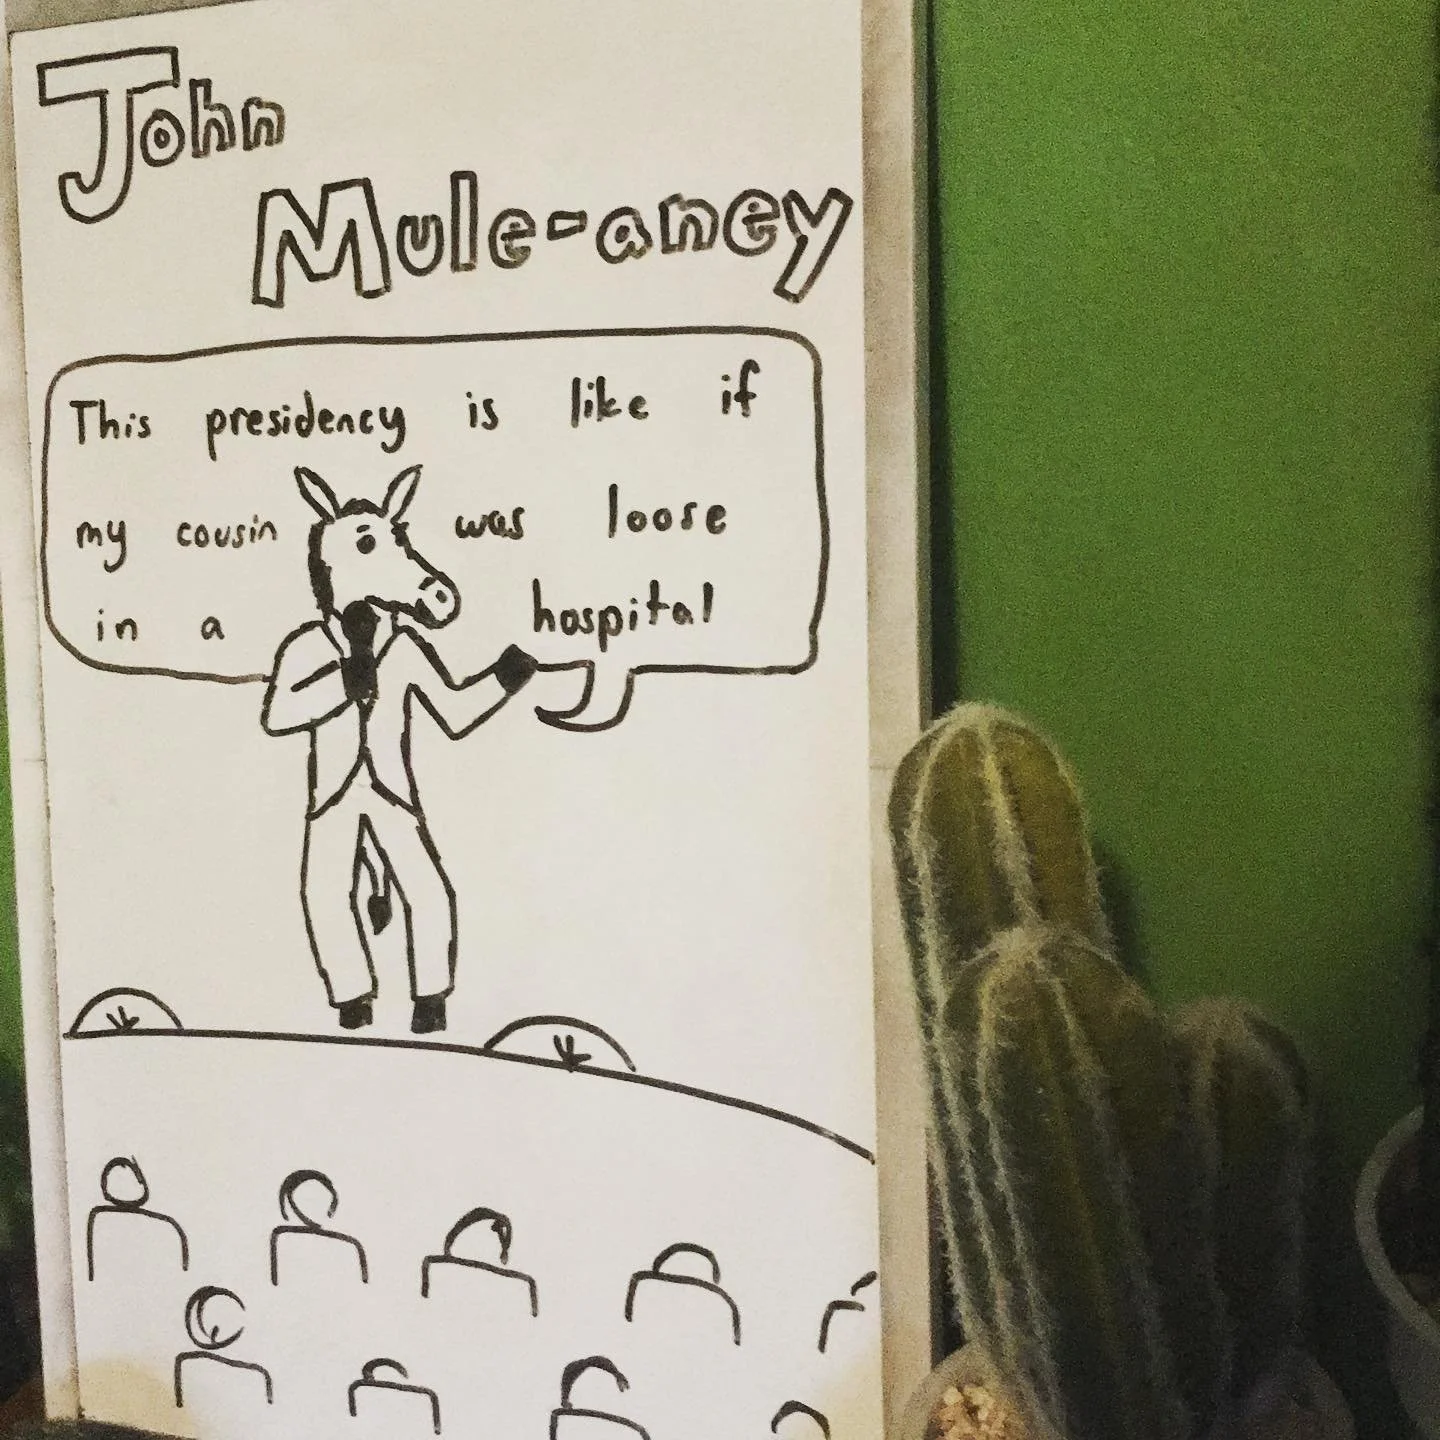 John
Mule-aney
This presidency is like if
my cousin was loose
in a hospital